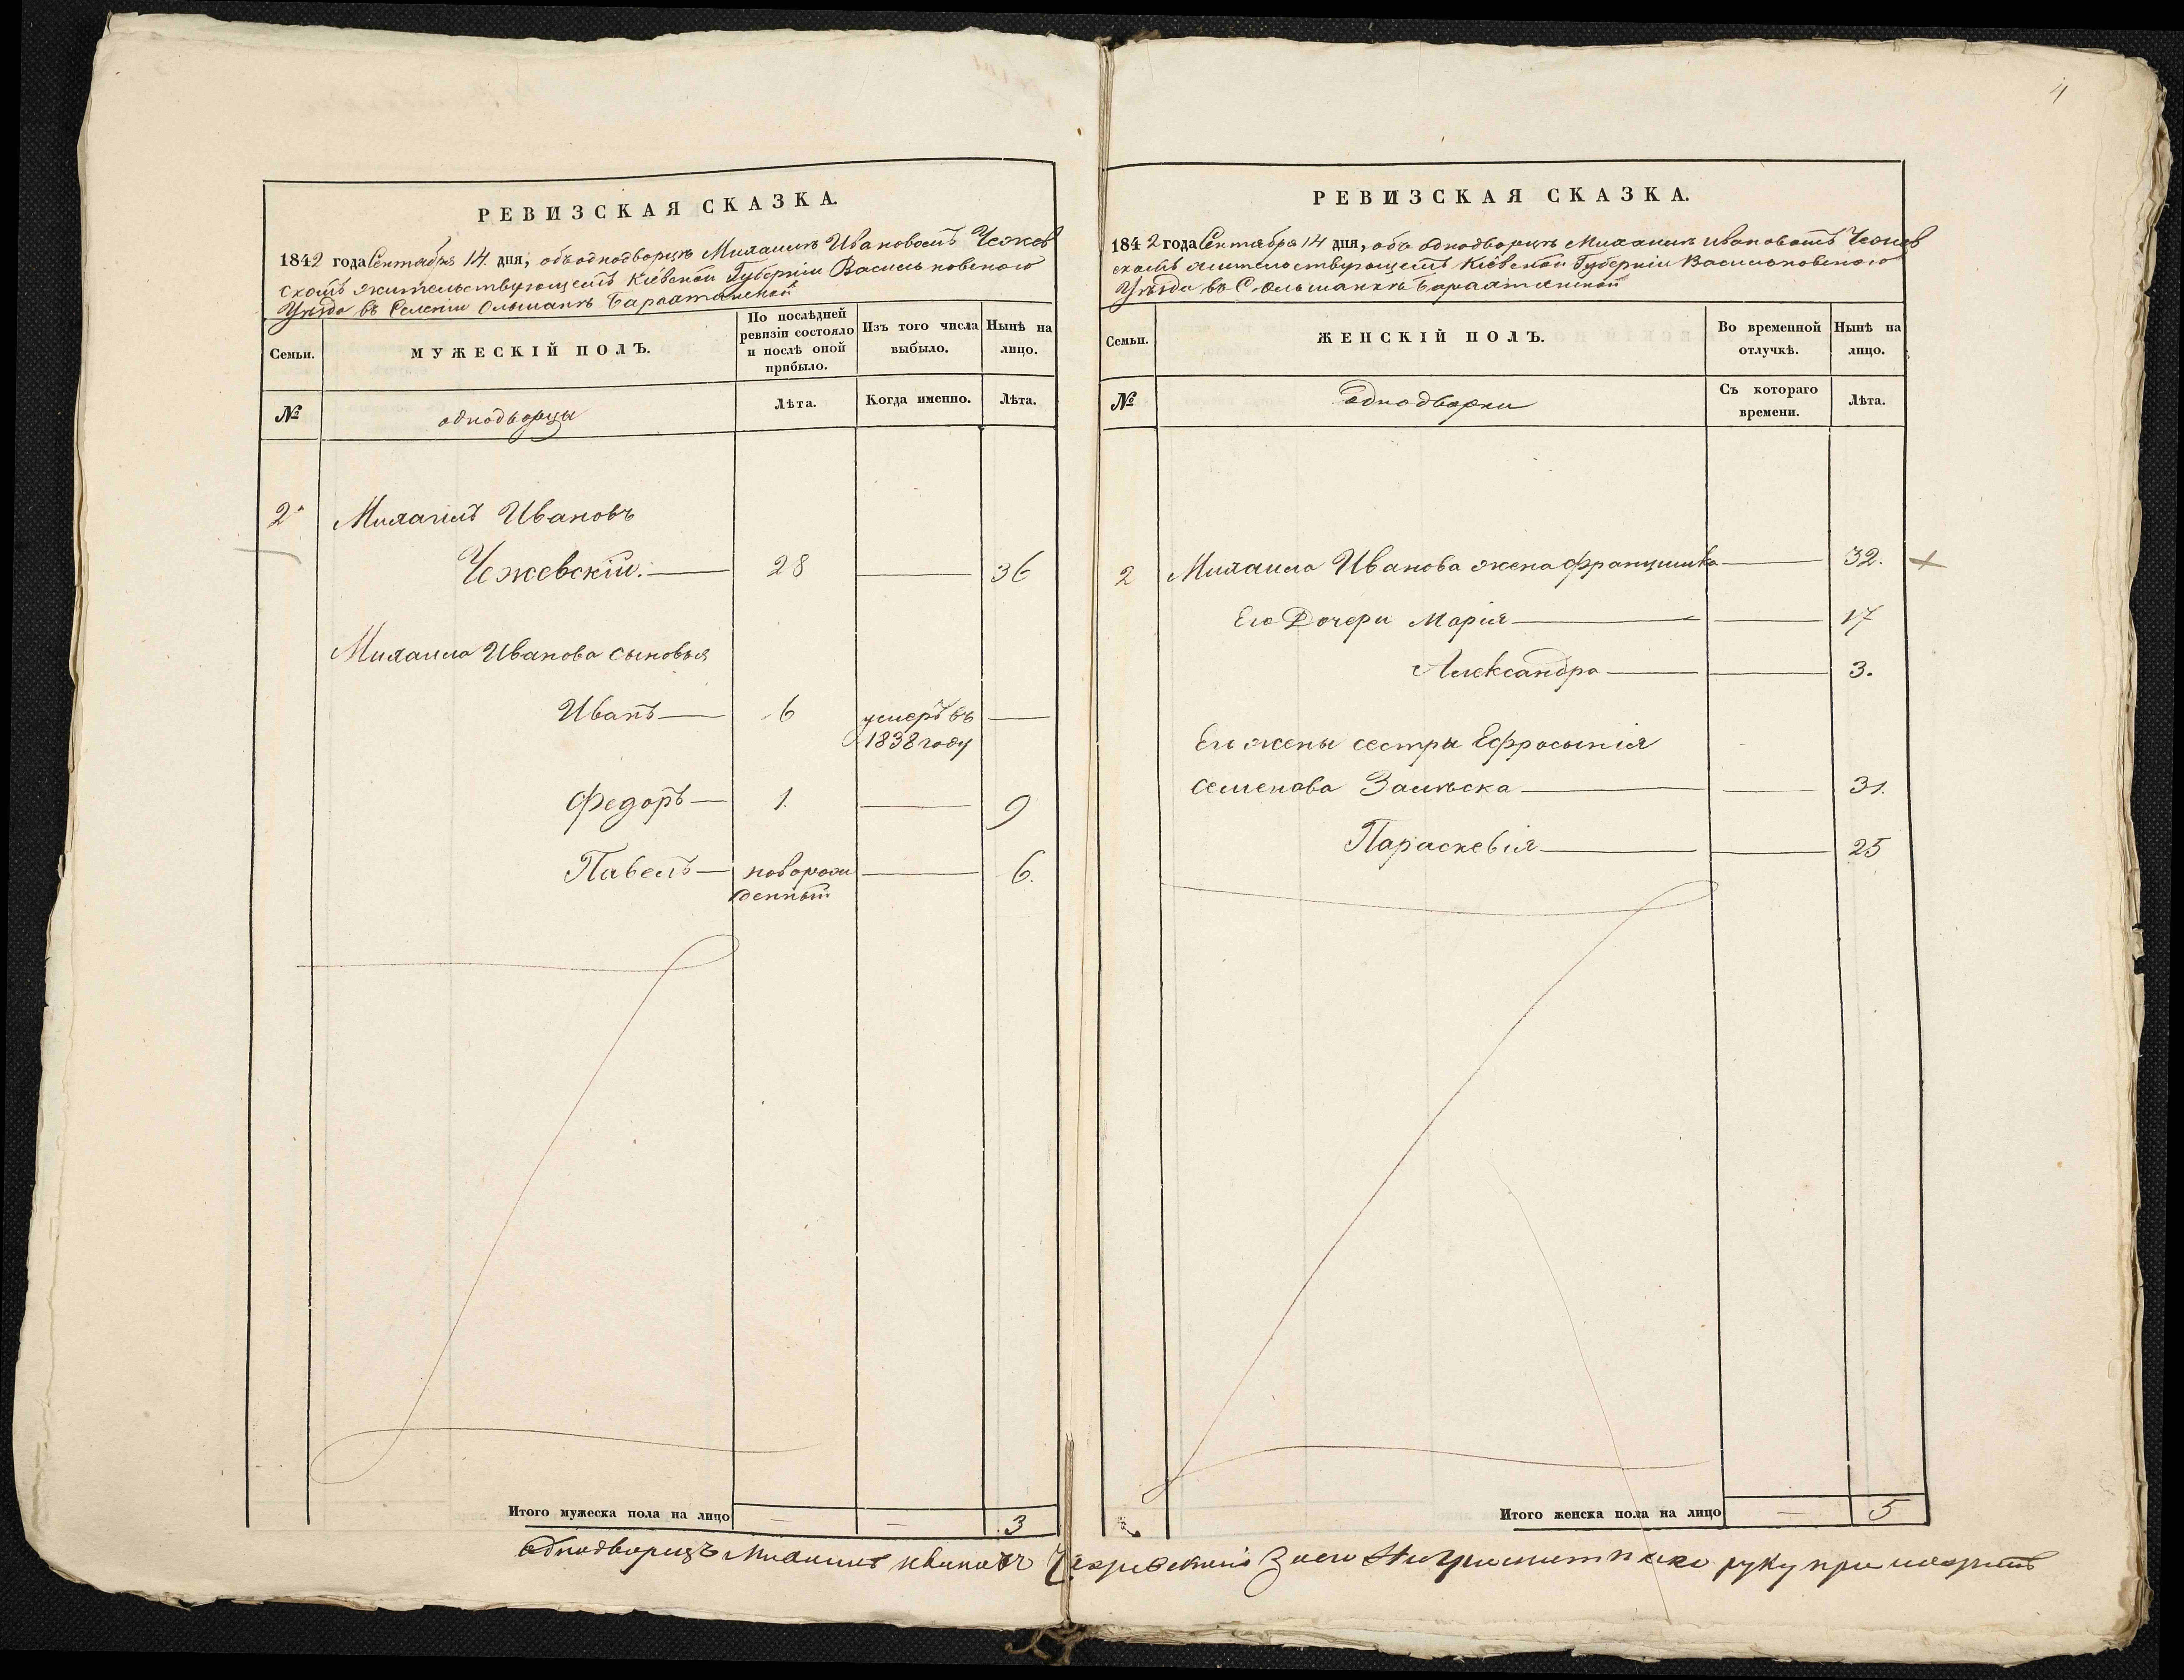 4
РЕВИЗСКАЯ СКАЗКА.
1842 года Сентября 14 дня, объ однодворцѣ Михаилѣ Ивановомъ Чежев
скомъ жительствующемъ Кіевской Губерніи Васильковского
Уѣзда въ Селеніи Ольшанкѣ
Семьи.
МУЖЕСКІЙ ПОЛЪ.
По послѣдней ревизіи состояло и послѣ оной прибыло.
Изъ того числа выбыло.
Нынѣ на лицо.
№
однодворцы
Лѣта.
Когда именно.
Лѣта.
2 Михаилъ Ивановъ
Чежевскій. — 28 — 36
Михаила Иванова сыновья
Иванъ — 6 умеръ въ —
1838 году
Федоръ — 1. — 9
Павелъ — новорож — 6.
денный
Итого мужеска пола на лицо — — 3
РЕВИЗСКАЯ СКАЗКА.
1842 года Сентября 14 дня, объ однодворцѣ Михаилѣ Ивановомъ Чежев
скомъ жительствующемъ Кіевской Губерніи Васильковского
Уѣзда въ С. Ольшанкѣ
Семьи.
ЖЕНСКІЙ ПОЛЪ.
Во временной отлучкѣ.
Нынѣ на лицо.
№
однодворки
Съ котораго времени.
Лѣта.
2 Михаила Иванова жена Францишка — 32.
Его Дочери Марія — — 17
Александра — — 3.
Его жены сестры Ефросынія
Семенова — — 31.
Параскевія — — 25
Итого женска пола на лицо — 5
однодворецъ Михаилъ Ивановъ руку приложилъ